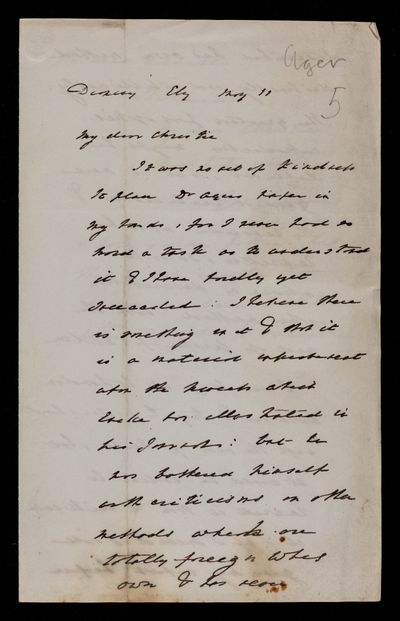 Ager
5
Deanery Ely May 11
My dear Christie
It was no act of kindness
to place Dr Agers paper in
my hands, for I never had so
hard a task as to understand
it & I have hardly yet
succeeded: I believe there
is something in it & that it
is a material improvement
upon the
has illustrated in
his Journal: but he
has bothered himself
with criticisms on other
methods which are
totally foreign to his
own & has